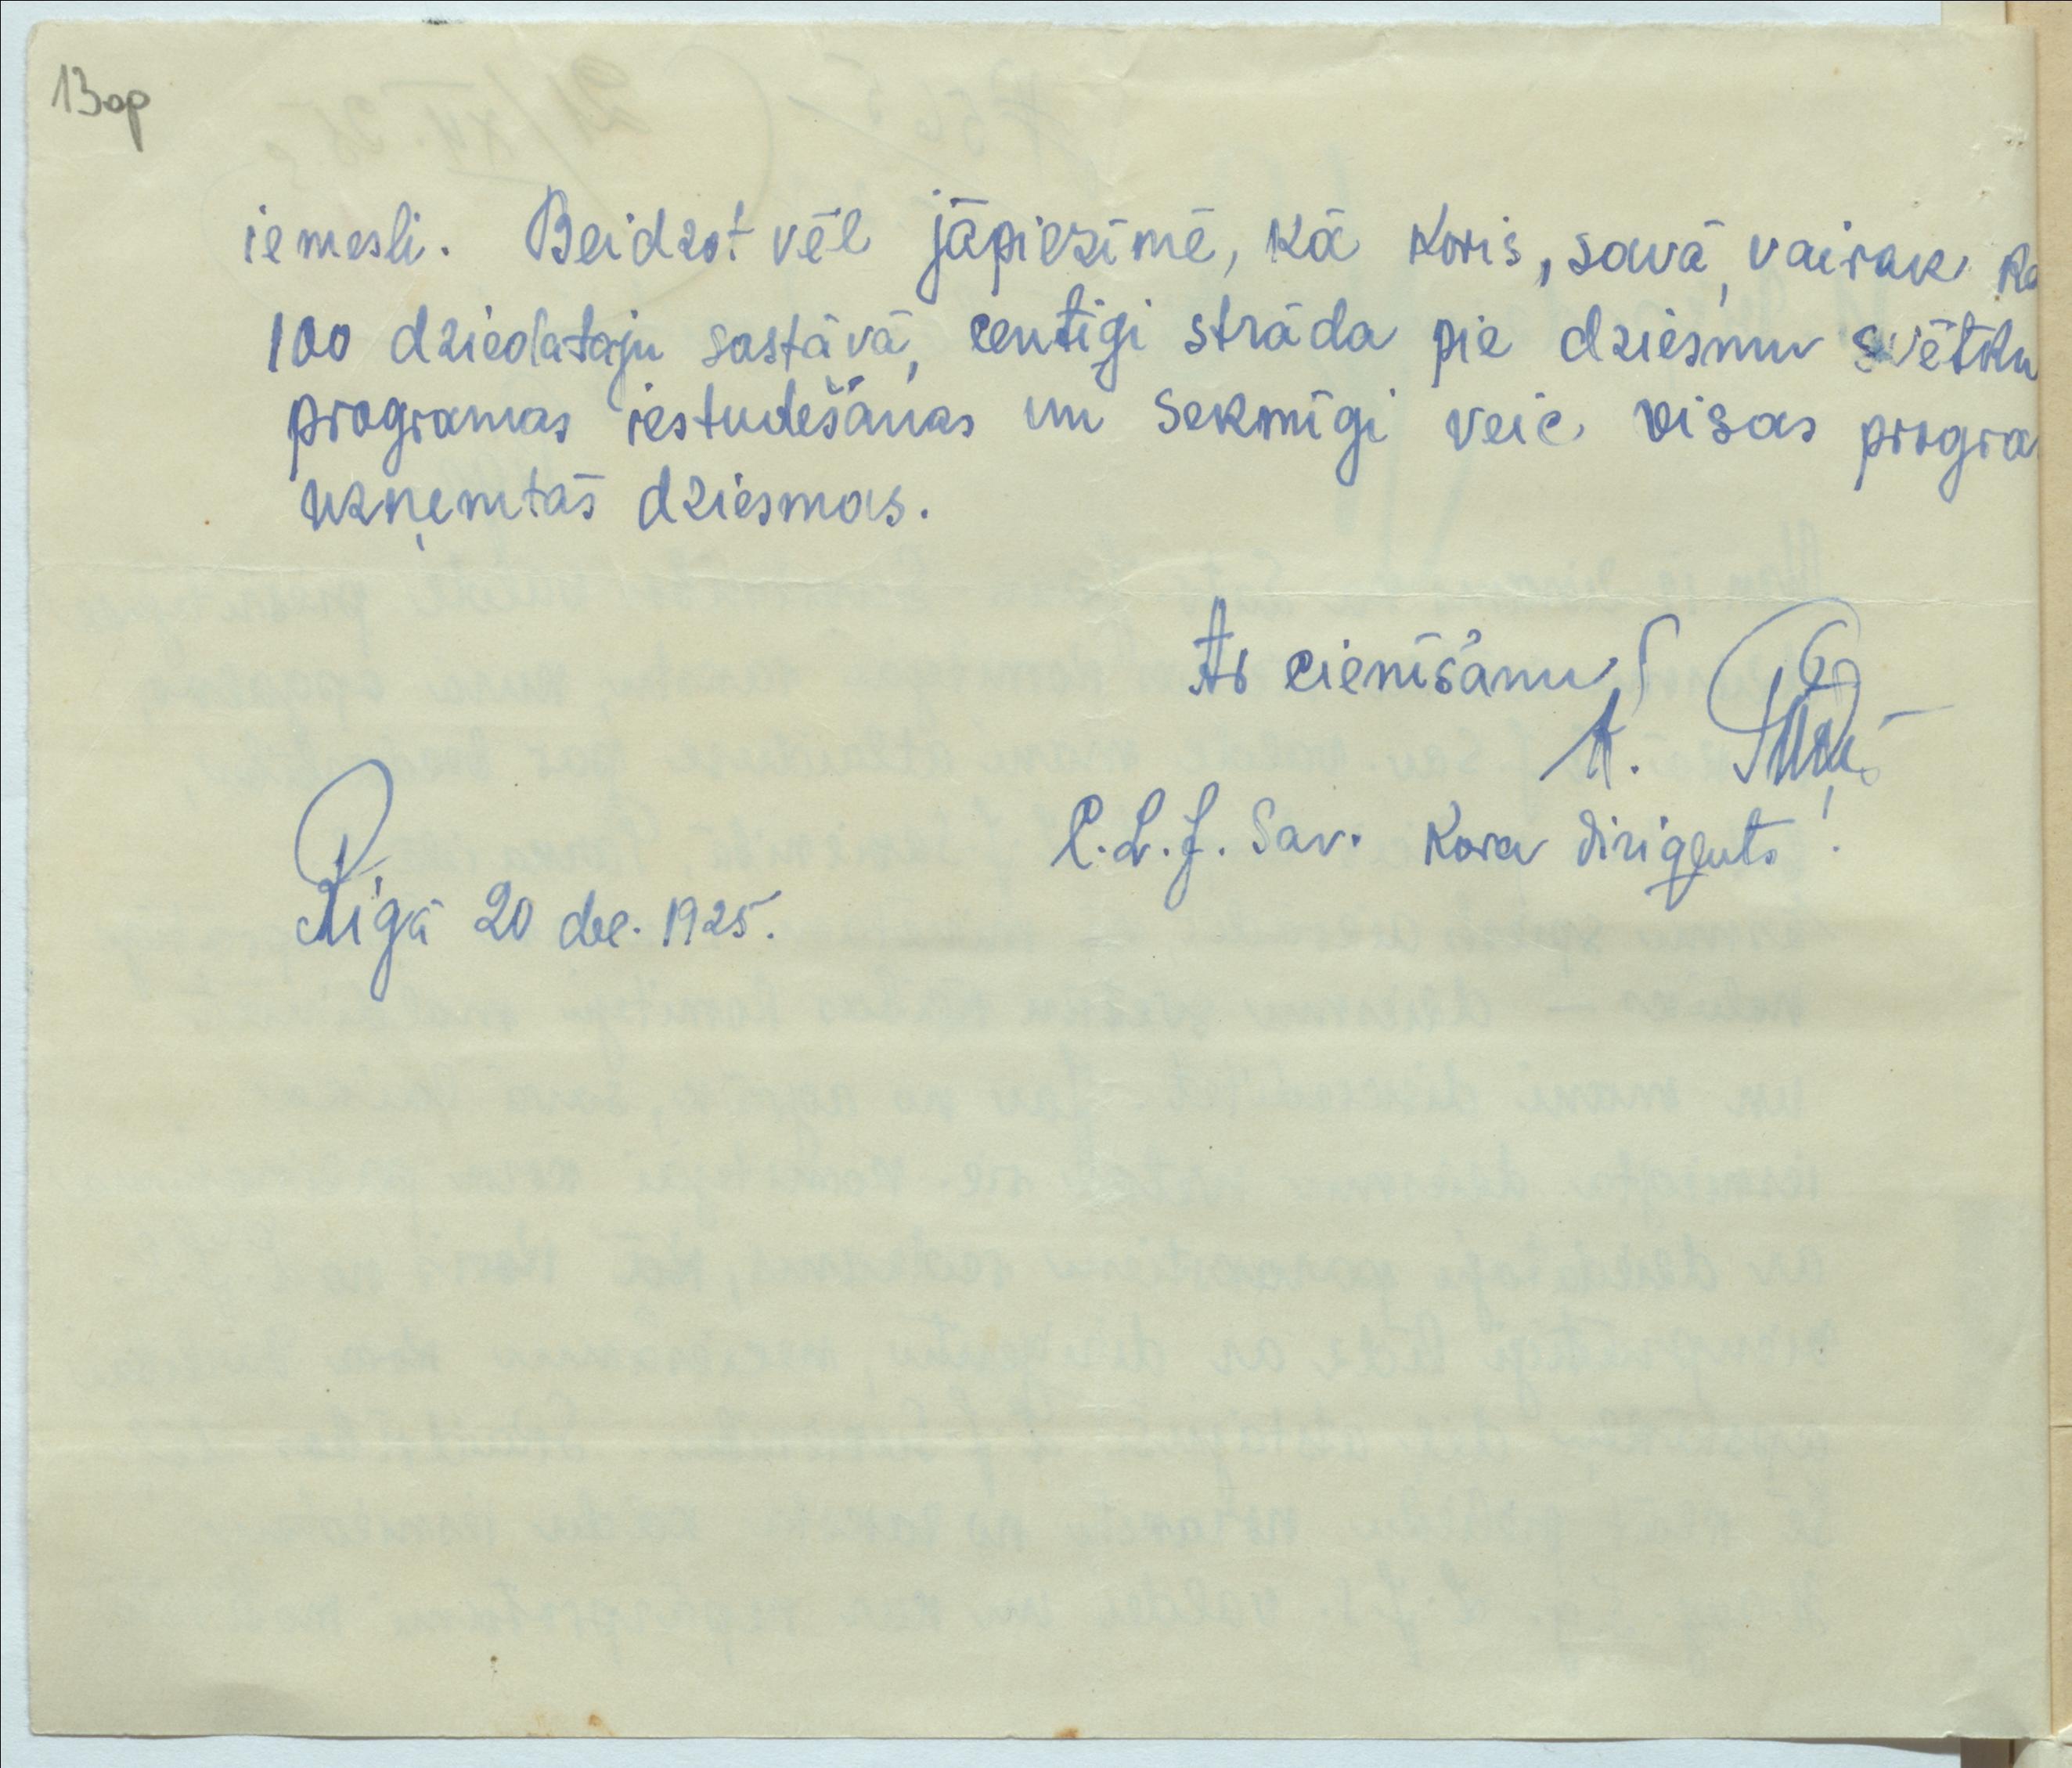 13op
iemesli. Beidzot vēl jāpiezīmē, kā koris, savā, vairak ka
100 dziedataju sastāvā, centīgi strāda pie dziesmu svētku
programas iestudešanas un sekmīgi veic visas progra
uzņemtās dziesmas.
Ar cienīšanu
A.
C.L.J. Sav. Kora dirigents!
Rīgā 20 dec. 1925.